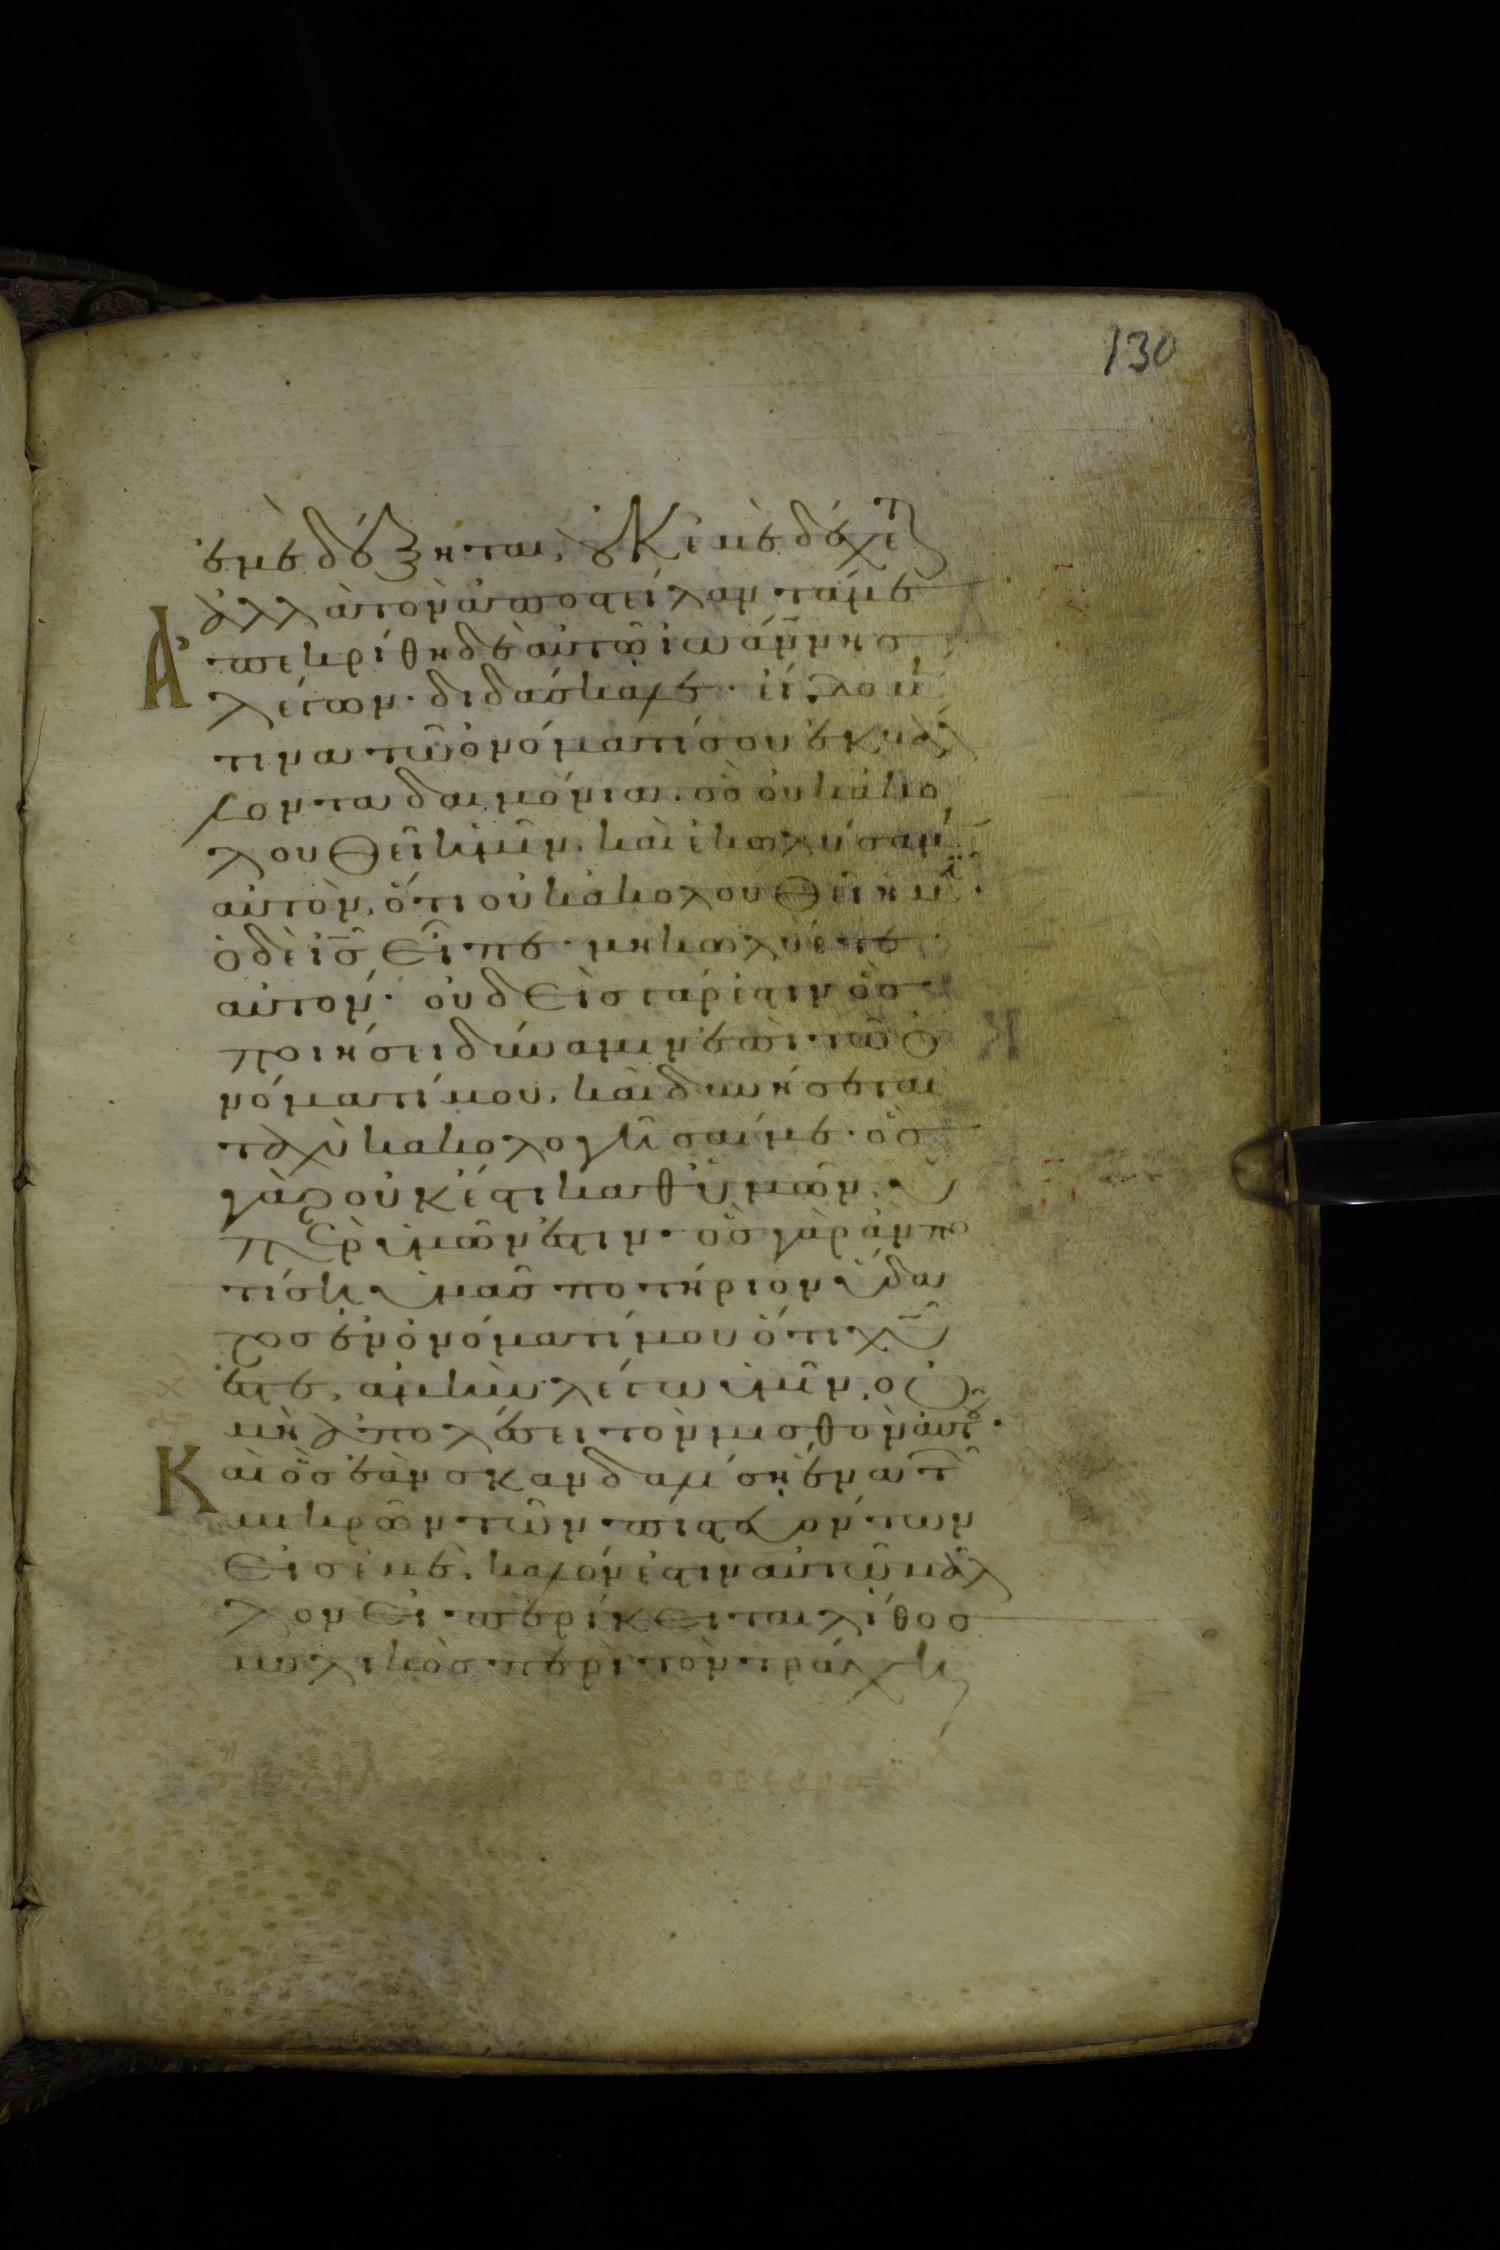 130
ἐμὲ δέξηται, οὐκ ἐμὲ δέχετ
ἀλλὰ τὸν ἀποστείλαντά με
Ἀπεκρίθη δὲ αὐτῶ ἰωάννης
λέγων· διδάσκαλε· εἴδομ
τινα τῶ ὀνόματί σου ἐκβάλ
λοντα δαιμόνια. ὃς οὐκ ἀκο
λουθεῖ ἡμῖν. καὶ ἐκωλύσαμ
αὐτὸν, ὅτι οὐκ ἀκολουθεῖ ἡμῖ·
ὁ δὲ ις εἶπε· μὴ κωλύετε
αὐτόν· οὐδεὶς γάρ ἐστιν ὃς
ποιήσει δύναμιν ἐπὶ τῶ ὀ
νόματί μου. καὶ δυνήσεται
ταχὺ κακολογῆσαί με· ὃς
γὰρ οὐκ ἔστι καθ' ὑμῶν. ὑ
πὲρ ὑμῶν ἐστιν· ὃς γὰρ ἂν πο
τίση ὑμᾶς ποτήριον ὕδα
τος ἐν ὀνόματί μου ὅτι χυ
ἐστε, ἀμὴν λέγω ὑμῖν, οὐ
μὴ ἀπολέσει τὸν μισθὸν αὐτοῦ·
Καὶ ὃς ἐὰν σκανδαλίση ἕνα τῶ
μικρῶν τῶν πιστευόντων
εἰς ἐμὲ, καλόν ἐστιν αὐτῶ μᾶλ
λον εἰ περίκειται λίθος
μυλικὸς περὶ τὸν τράχη